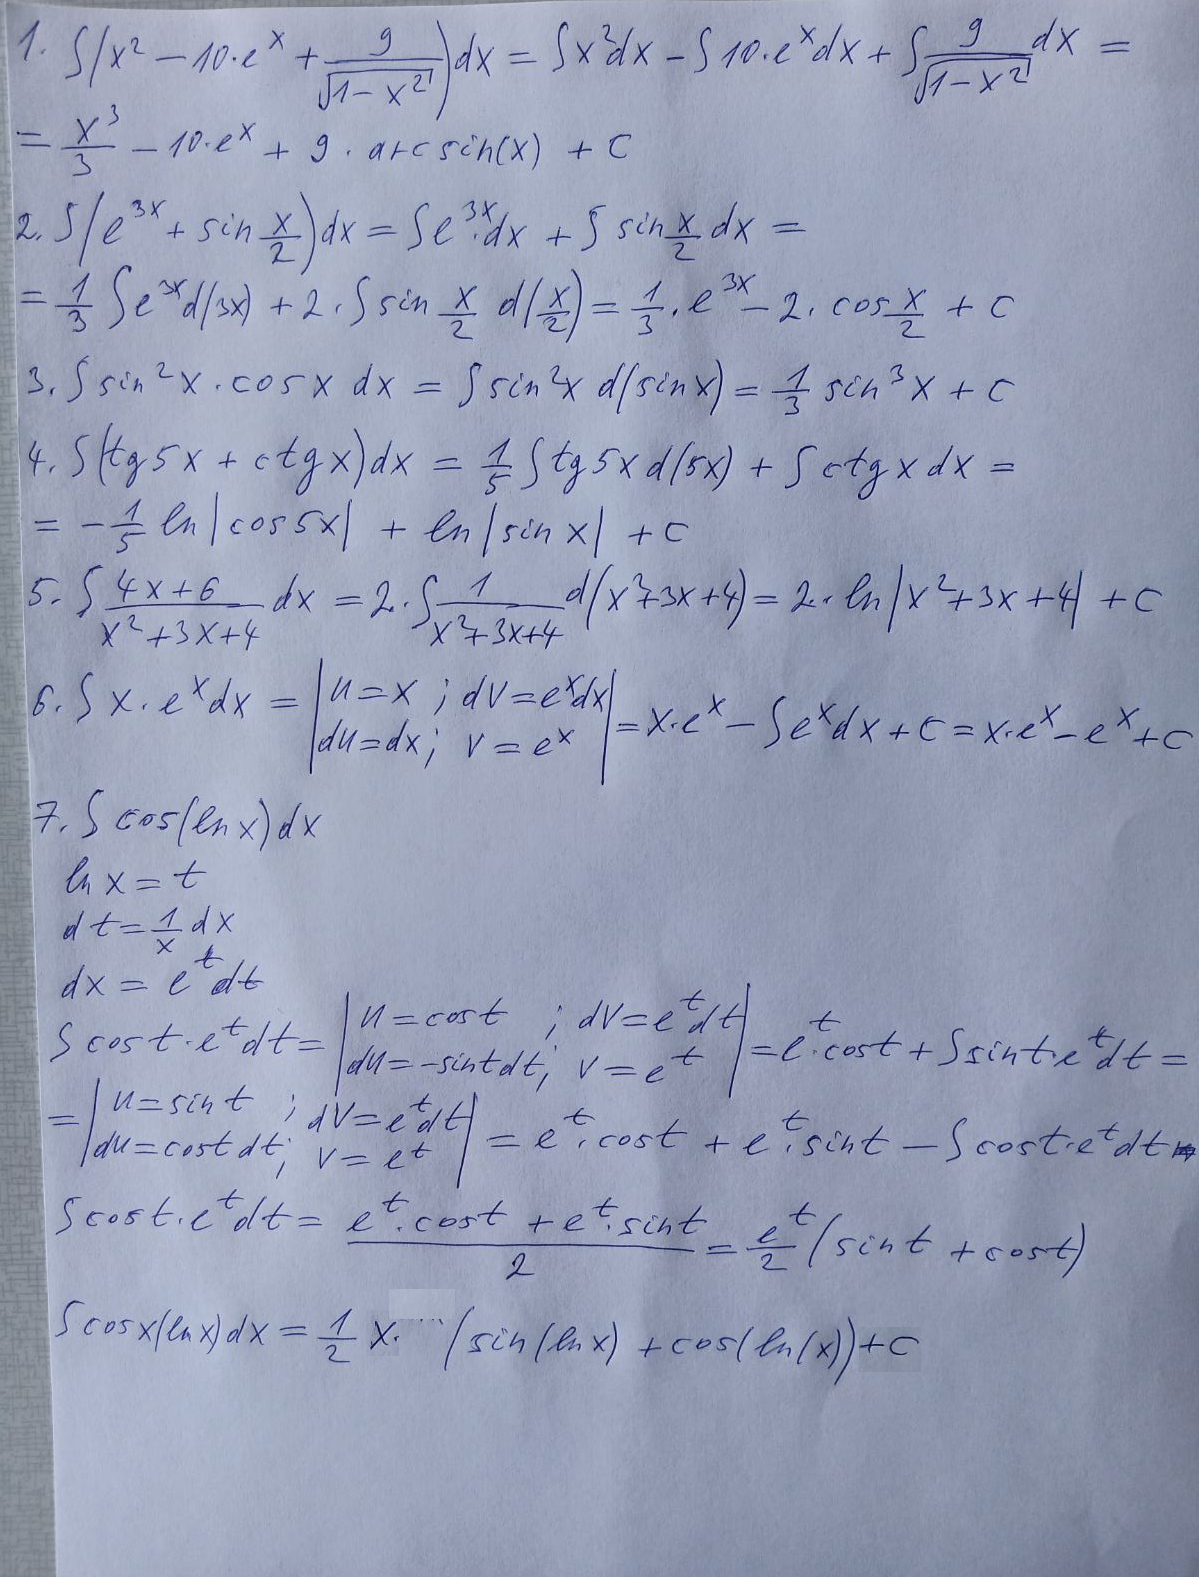 1. ∫(x² − 10·eˣ + 9/√(1−x²))dx = ∫x²dx − ∫10·eˣdx + ∫9/√(1−x²) dx =
= x³/3 − 10·eˣ + 9·arcsin(x) + C
2. ∫(e³ˣ + sin x/2)dx = ∫e³ˣ·dx + ∫ sin x/2 dx =
= 1/3 ∫e³ˣd(3x) + 2·∫sin x/2 d(x/2) = 1/3·e³ˣ − 2·cos x/2 + C
3. ∫sin²x·cosx dx = ∫sin²x d(sinx) = 1/3 sin³x + C
4. ∫(tg5x + ctgx)dx = 1/5 ∫tg5x d(5x) + ∫ctgx dx =
= −1/5 ln|cos5x| + ln|sinx| + C
5. ∫ (4x+6)/(x²+3x+4) dx = 2·∫ 1/(x²+3x+4) d(x²+3x+4) = 2·ln|x²+3x+4| + C
6. ∫x·eˣdx = |u=x ; dv=eˣdx
du=dx; v=eˣ| = x·eˣ − ∫eˣdx + C = x·eˣ − eˣ + C
7. ∫cos(lnx)dx
lnx = t
dt = 1/x dx
dx = eᵗdt
∫cost·eᵗdt = |u=cost ; dv=eᵗdt
du=−sintdt; v=eᵗ| = eᵗ·cost + ∫sint·eᵗdt =
= |u=sint ; dv=eᵗdt
du=costdt; v=eᵗ| = eᵗ·cost + eᵗ·sint − ∫cost·eᵗdt
∫cost·eᵗdt = (eᵗ·cost + eᵗ·sint)/2 = eᵗ/2 (sint + cost)
∫cosx(lnx)dx = 1/2 x· (sin(lnx) + cos(ln(x)) + C